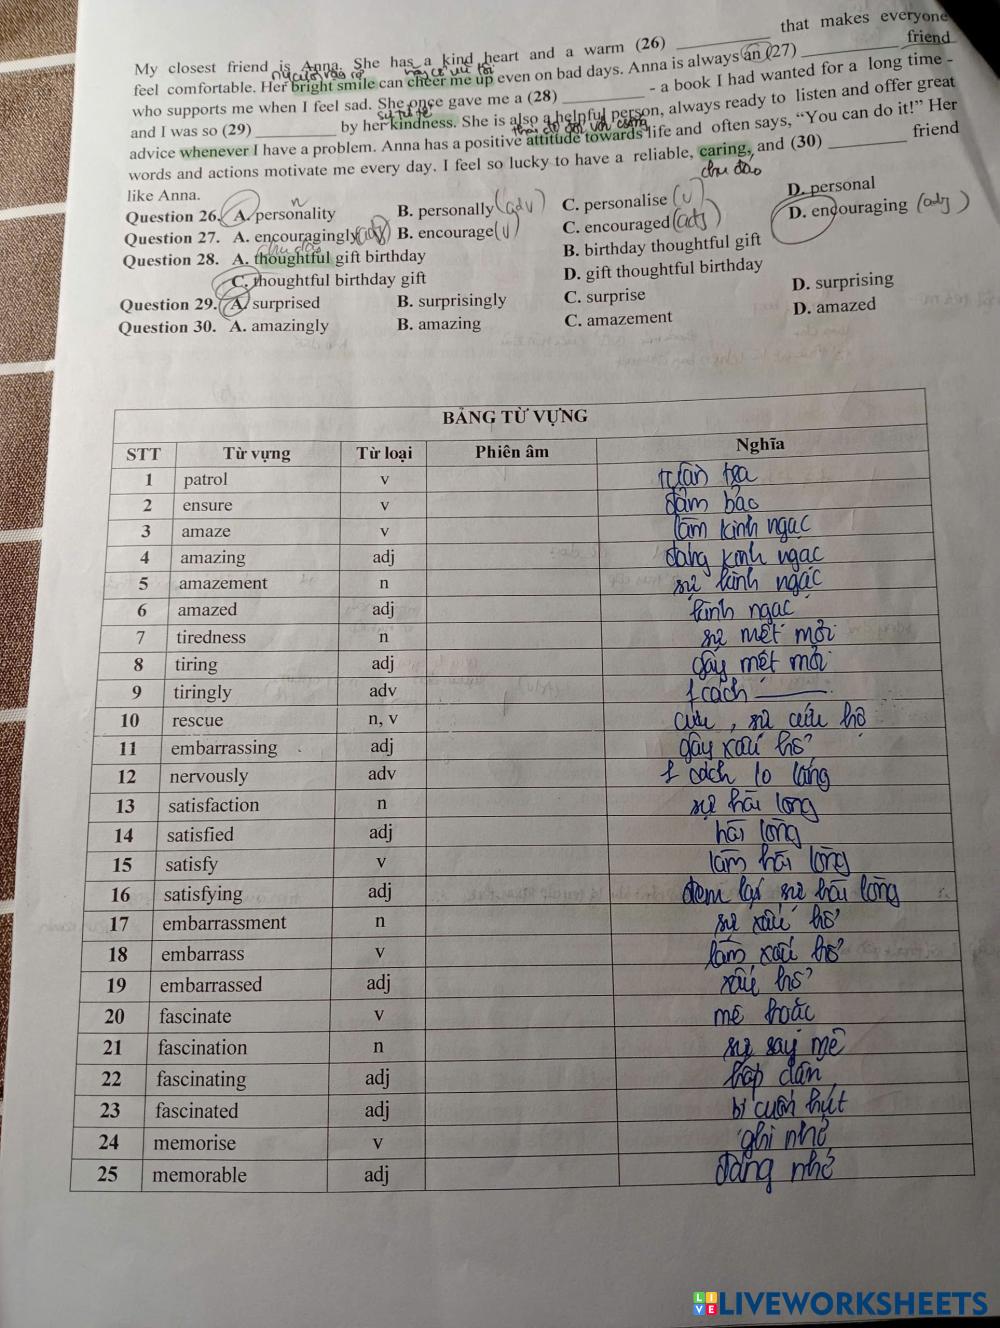 My closest friend is Anna. She has a kind heart and a warm (26) __________ that makes everyone
feel comfortable. Her bright smile can cheer me up even on bad days. Anna is always an (27) __________ friend
who supports me when I feel sad. She once gave me a (28) __________ - a book I had wanted for a long time -
sự tử tế
and I was so (29) __________ by her kindness. She is also a helpful person, always ready to listen and offer great
thái độ đối với
advice whenever I have a problem. Anna has a positive attitude towards life and often says, “You can do it!” Her
words and actions motivate me every day. I feel so lucky to have a reliable, caring, and (30) __________ friend
chu đáo
like Anna.
n
Question 26. A. personality B. personally (adv) C. personalise (v) D. personal
Question 27. A. encouragingly (adv) B. encourage (v) C. encouraged (adj) D. encouraging (adj)
chu đáo
Question 28. A. thoughtful gift birthday B. birthday thoughtful gift
C. thoughtful birthday gift D. gift thoughtful birthday
Question 29. A. surprised B. surprisingly C. surprise D. surprising
Question 30. A. amazingly B. amazing C. amazement D. amazed
BẢNG TỪ VỰNG
STT Từ vựng Từ loại Phiên âm Nghĩa
1 patrol v tuần tra
2 ensure v đảm bảo
3 amaze v làm kinh ngạc
4 amazing adj đáng kinh ngạc
5 amazement n sự kinh ngạc
6 amazed adj kinh ngạc
7 tiredness n sự mệt mỏi
8 tiring adj gây mệt mỏi
9 tiringly adv 1 cách ____
10 rescue n, v cứu, sự cứu hộ
11 embarrassing adj gây xấu hổ
12 nervously adv 1 cách lo lắng
13 satisfaction n sự hài lòng
14 satisfied adj hài lòng
15 satisfy v làm hài lòng
16 satisfying adj đem lại sự hài lòng
17 embarrassment n sự xấu hổ
18 embarrass v làm xấu hổ
19 embarrassed adj xấu hổ
20 fascinate v mê hoặc
21 fascination n sự say mê
22 fascinating adj hấp dẫn
23 fascinated adj bị cuốn hút
24 memorise v ghi nhớ
25 memorable adj đáng nhớ
LIVE LIVEWORKSHEETS